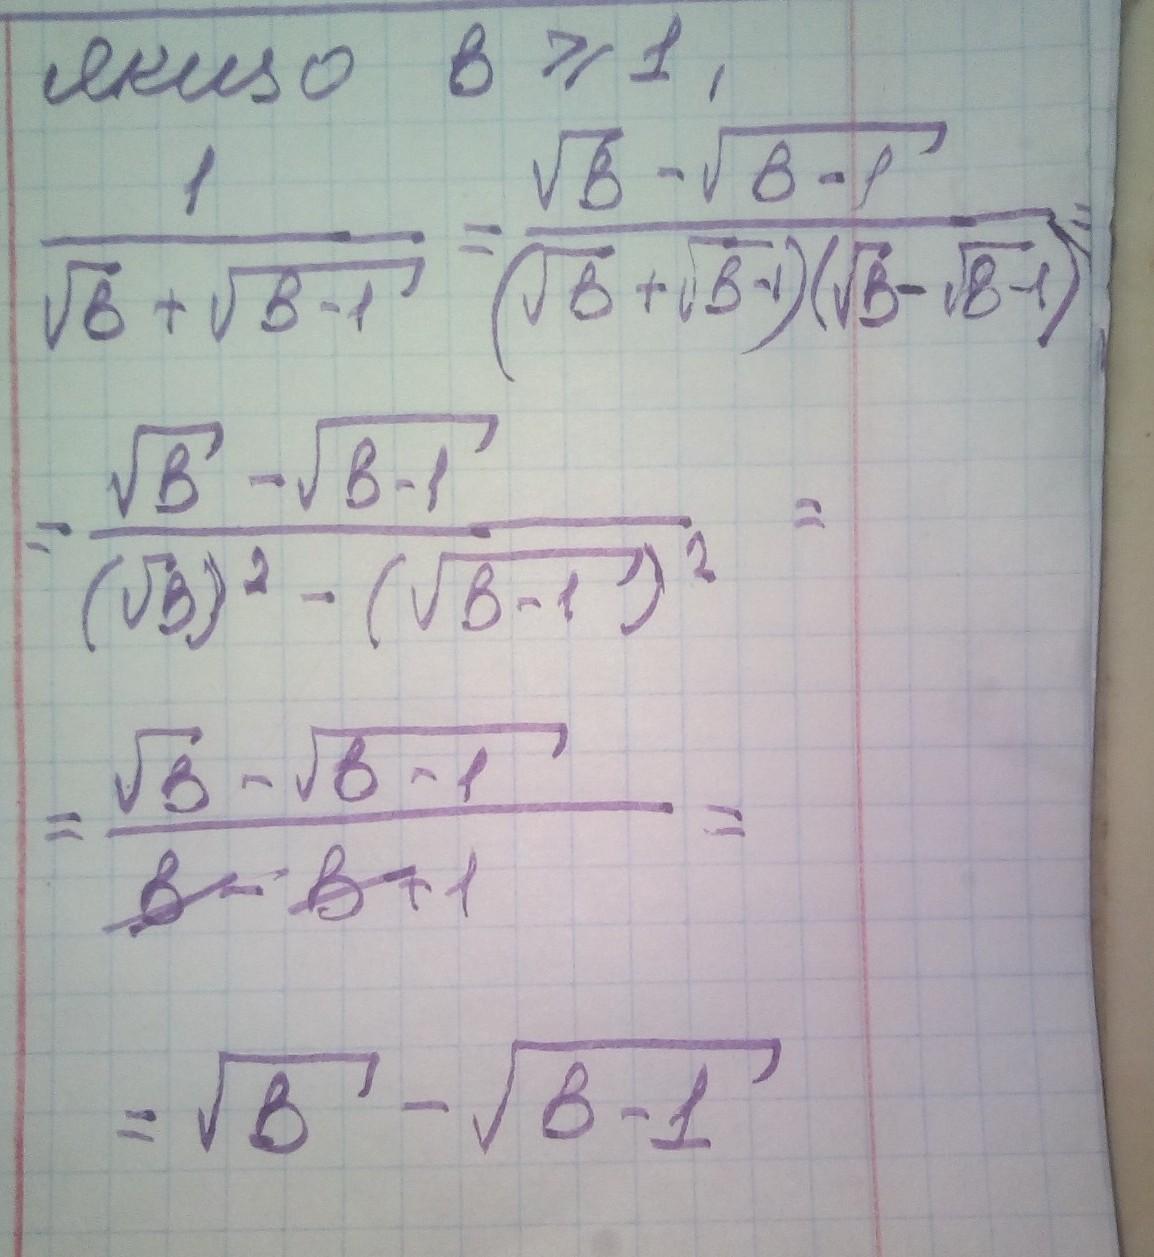 якщо в ≥ 1,
1/(√в + √(в-1)) = (√в - √(в-1))/((√в + √(в-1))(√в - √(в-1))) =
= (√в - √(в-1))/((√в)² - (√(в-1))²) =
= (√в - √(в-1))/(в - в + 1) =
= √в - √(в-1)